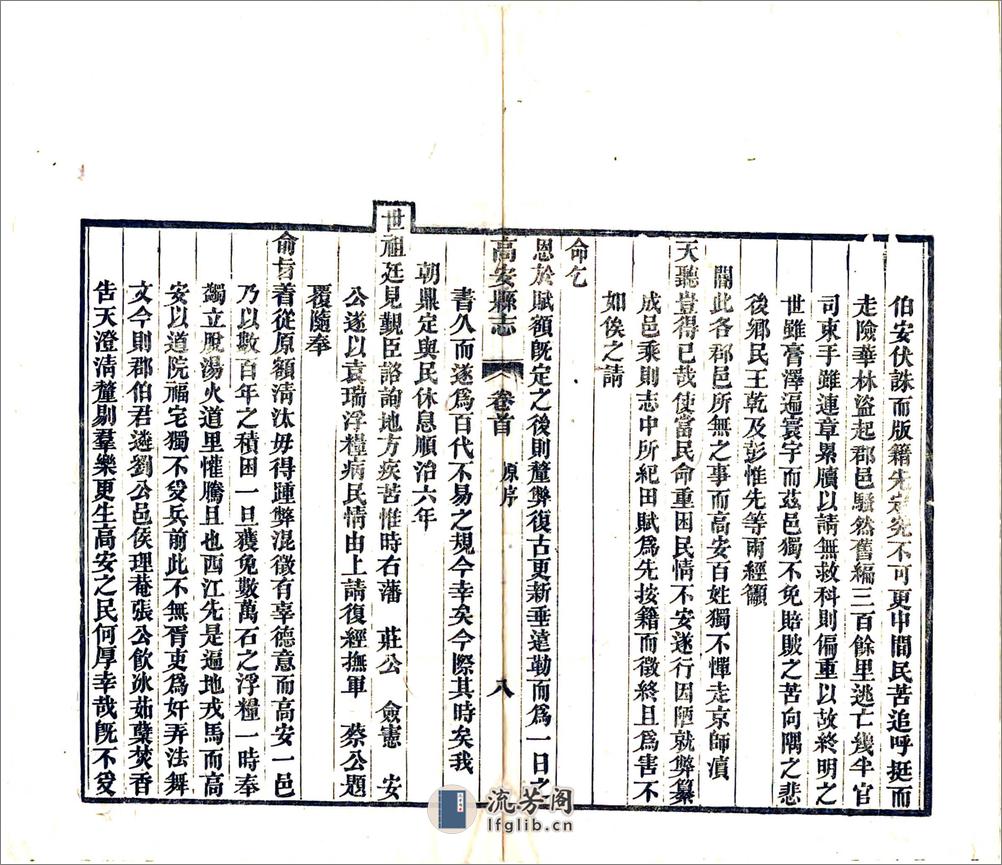 伯安伏誅而版籍先定究不可更中間民苦追呼挺而
走險華林盜起郡邑騷然舊編三百餘里逃亡幾半官
司束手雖連章累牘以請無救科則偏重以故終明之
世雖膏澤遍寰宇而茲邑獨不免賠賍之苦向隅之悲
後鄉民王乾及彭惟先等兩經籲
閽此各郡邑所無之事而高安百姓獨不憚走京師瀆
天聽豈得已哉使當民命重困民情不安遂行因陋就弊纂
成邑乘則志中所紀田賦為先按籍而徵終且為害不
如俟之請
命乞
恩於賦額既定之後則釐弊復古更新垂遠勒而為一日之
高安縣志
卷首
原序
八
書久而遂為百代不易之規今幸矣今際其時矣我
朝鼎定與民休息順治六年
世祖廷見觀臣諮諭地方疾苦惟時右藩 莊公 僉憲 安
公遂以袁瑞浮糧病民情由上請復經撫軍 蔡公題
覆隨奉
俞旨着從原額清汰毋得踵弊混徵有辜德意而高安一邑
乃以數百年之積困一旦獲免數萬石之浮糧一時奉
蠲立脫湯火道里懽騰且也西江先是遍地戎馬而高
安以道院福宅獨不受兵前此不無胥吏為奸弄法舞
文今則郡伯君遴劉公邑侯理菴張公飲冰茹蘗焚香
告天澄清釐剔羣樂更生高安之民何厚幸哉既不受
流芳阁
lfglib.cn